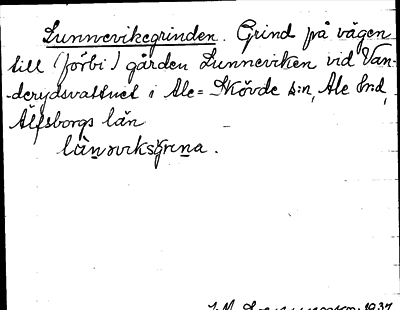 Lunnevikegrinden. Grind på vägen
till (förbi) gården Lunneviken vid Van-
derydsvattnet i Ale=Skövde s:n, Ale hrd,
Älfsborgs län
1937